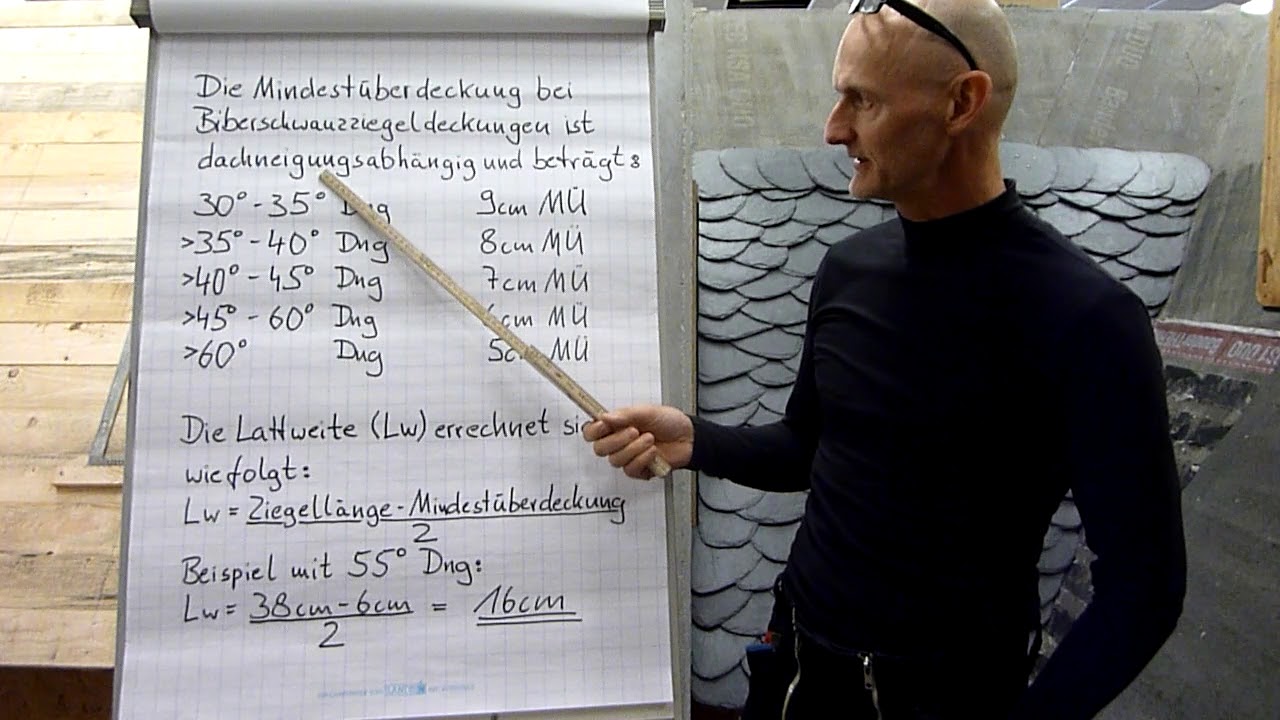 Die Mindestüberdeckung bei
Biberschwanzziegeldeckungen ist
dachneigungsabhängig und beträgt:
30° - 35° Dng 9cm MÜ
>35° - 40° Dng 8cm MÜ
>40° - 45° Dng 7cm MÜ
>45° - 60° Dng 6cm MÜ
>60° Dng 5cm MÜ
Die Lattweite (Lw) errechnet
wie folgt:
Lw = Ziegellänge - Mindestüberdeckung
2
Beispiel mit 55° Dng:
Lw = 38cm - 6cm = 16cm
2